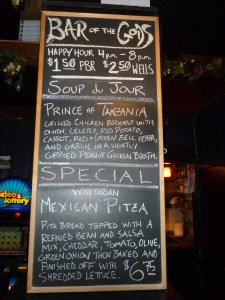 BAR OF THE GODS
HAPPY HOUR 4PM. - 8P.M.
$1.50 PBR $2.50 WELLS
SOUP du JOUR
PRINCE OF TANZANIA
GRILLED CHICKEN BREAST WITH
ONION, CELERY, RED POTATO,
CARROT, RED & GREEN BELL PEPPER,
AND GARLIC IN A LIGHTLY
CURRIED PEANUT CHICKEN BROTH.
SPECIAL
VEGETARIAN
MEXICAN PITZA
PITA BREAD TOPPED WITH A
REFRIED BEAN AND SALSA
MIX, CHEDDAR, TOMATO, OLIVE,
GREEN ONION THEN BAKED AND
FINISHED OFF WITH $6.75
SHREDDED LETTUCE.
video
lottery